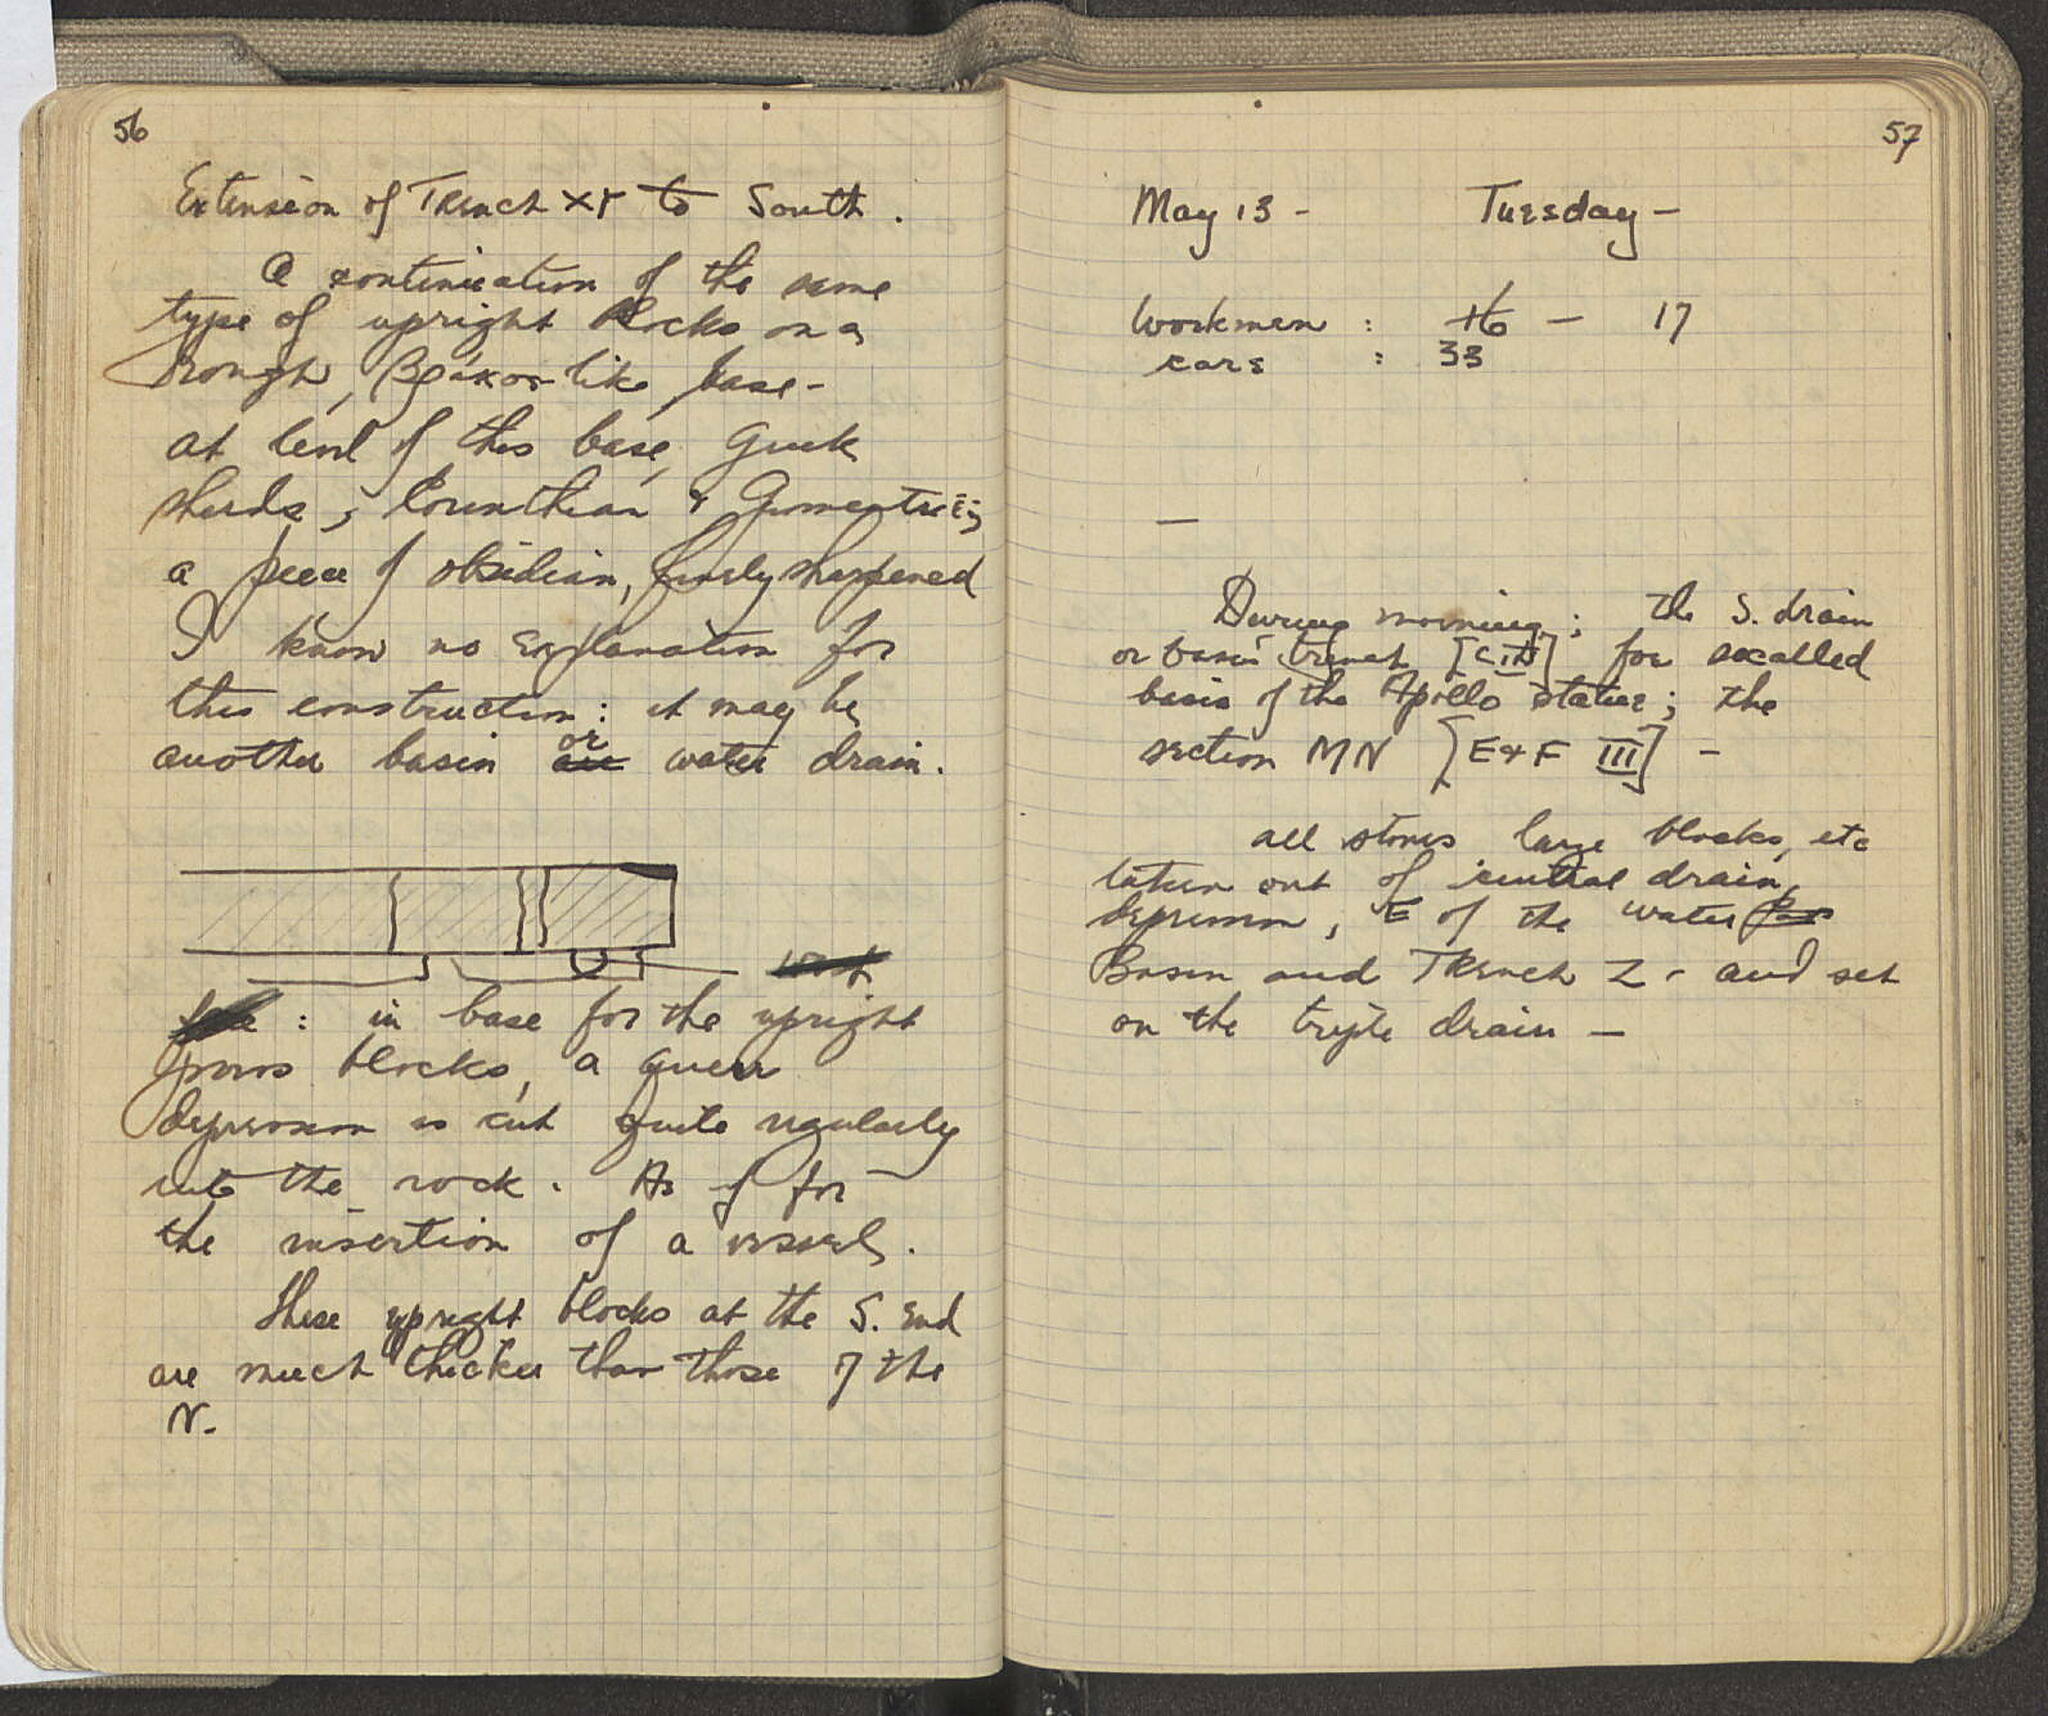 56
Extension of Trench XY to South.
A continuation of the same
type of upright blocks on a
rough, βράχος like base -
At level of this base, Greek
sherds, Corinthian & Geometric;
a piece of obsidian, finely sharpened
I know no explanation for
this construction: it may be
another basin or water drain.
: in base for the upright
poros blocks, a queer
depression is cut quite regularly
into the rock. As if for
the insertion of a vessel.
These upright blocks at the S. end
are much thicker than those of the
N-
57
May 13 - Tuesday -
Workmen : 16 - 17
cars : 33
—
During morning; the S. drain
or basin trench [C III] for socalled
basis of the Apollo statue; the
section MN [E & F III] -
all stones large blocks, etc
taken out of central drain,
depression, E of the water
Basin and Trench Z - and set
on the triple drain -